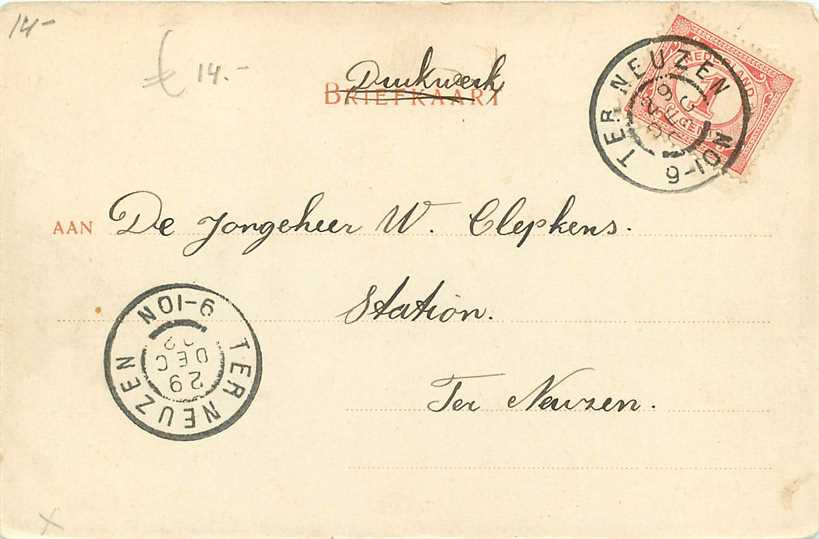 14-
€ 14.-
Drukwerk
BRIEFKAART
NEDERLAND
1
TER NEUZEN
9-10N
AAN De Jongeheer W. Clepkens.
Station.
Ter Neuzen.
TER NEUZEN
9-10N
29
DEC